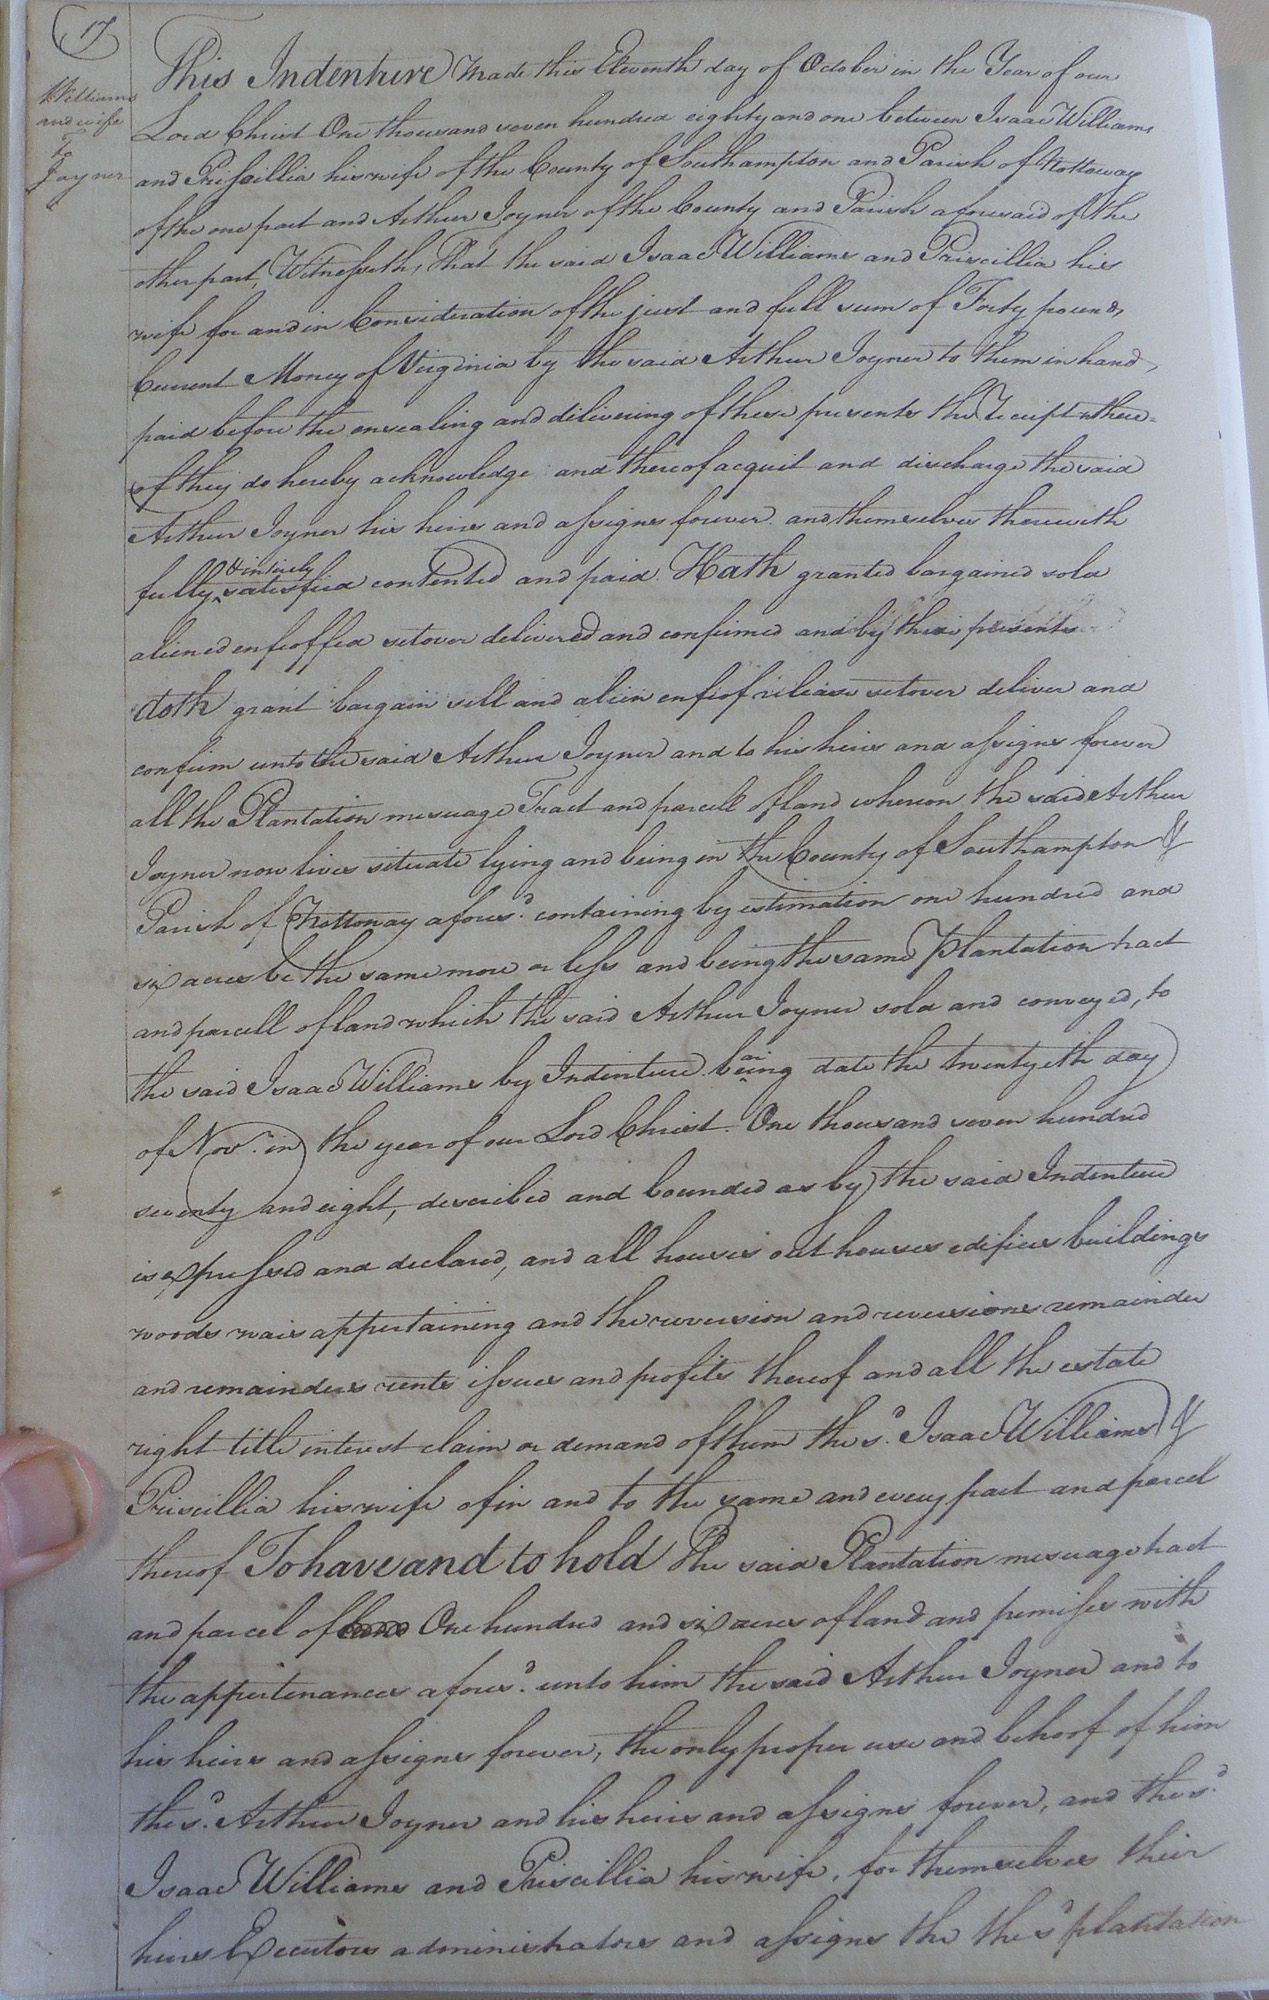 17
Williams
and wife
To
Joyner
This Indenture Made this Eleventh day of October in the Year of our
Lord Christ One thousand seven hundred eighty and one between Isaac Williams
and Prissillia his wife of the County of Southampton and Parish of Nottoway
of the one part and Arthur Joyner of the County and Parish aforesaid of the
other part, Witnesseth, That the said Isaac Williams and Priscillia his
wife for and in Consideration of the just and full sum of Forty pounds
Current Money of Virginia by the said Arthur Joyner to them in hand
paid before the ensealing and delivering of these presents the Receipt where=
of they do hereby acknowledge and thereof acquit and discharge the said
Arthur Joyner his heirs and assigns forever and themselves therewith
fully & intirely satisfied contented and paid. Hath granted bargained sold
aliened enfeoffed setover delivered and confirmed and by these presents
doth grant bargain sell and alien enfeof release setover deliver and
confirm unto the said Arthur Joyner and to his heirs and assigns forever
all the Plantation messuage Tract and parcell of land whereon the said Arthur
Joyner now lives situate lying and being in the County of Southampton &
Parish of Nottoway afores.d containing by estimation one hundred and
six acres be the same more or less and being the same Plantation tract
and parcell of land which the said Arthur Joyner sold and conveyed, to
the said Isaac Williams by Indenture bearing date the twentyeth day
of Nov.r in the year of our Lord Christ One thousand seven hundred
seventy and eight, described and bounded as by the said Indenture
is expressed and declared, and all houses out houses edifices buildings
woods wais appertaining and the reversion and reversions remainder
and remainders rents issues and profits thereof and all the estate
right title interest claim or demand of them the s.d Isaac Williams &
Priscillia his wife of in and to the same and every part and parcel
thereof To have and to hold The said Plantation messuage tract
and parcel of One hundred and six acres of land and premises with
the appertenances afores.d unto him the said Arthur Joyner and to
his heirs and assigns forever, the only proper use and behoof of him
the s.d Arthur Joyner and his heirs and assigns forever, and the s.d
Isaac Williams and Priscillia his wife, for themselves their
heirs Executors administrators and assigns the the s.d plantation